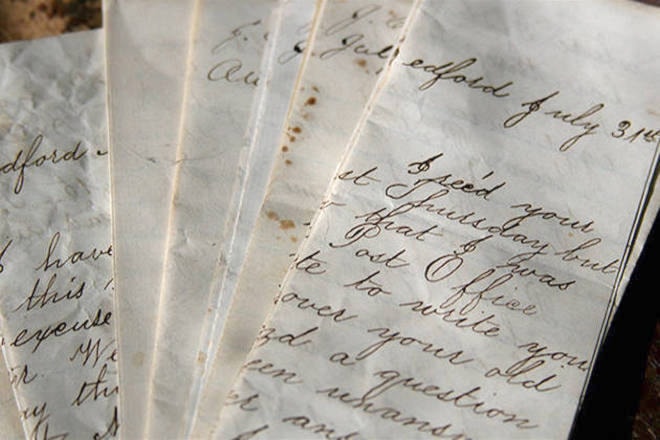 dford
I have
this
excuse
r. We
ay thi
J.
Au
J.
J. Jul
edford July 31st
I rec'd your
st Thursday but
that I was
Post Office
te to write you
over your old
nd a question
een unansw
er an